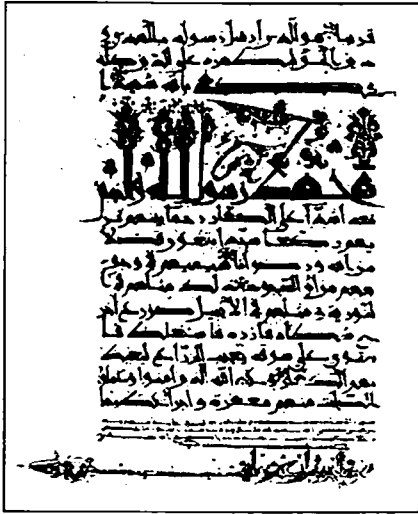 قريبا هو الذي ارسل رسوله بالهدى و
دين الحق ليظهره على الدين كله
و كفى بالله شهيدا
محمد رسول الله والذين
معه اشدا على الكفار رحما بينهم تر
يهم ركعا سجدا يبتغون فضلا
من الله ورضوانا سيماهم في وجو
ههم من اثر السجود ذلك مثلهم في ا
لتورية ومثلهم في الانجيل كزرع اخر
ج شطاه فازره فاستغلظ فا
ستوى على سوقه يعجب الزراع ليغيظ
بهم الكفار وعد الله الذين امنوا وعملوا
الصلحت منهم مغفرة واجرا عظيما